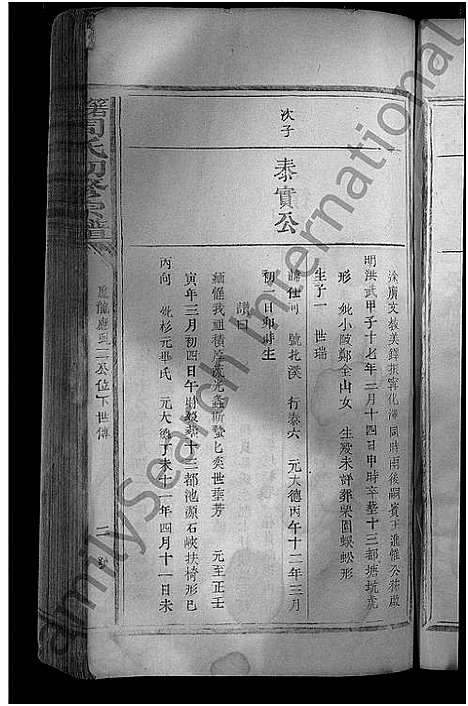 徐廣文教美鐸振寧化澤同時雨後嗣賓王濟惟公裕啟
明洪武甲子十七年二月十四日申時卒葬十三都塘坑虎
形 妣小陂鄭全山女 生歿未詳葬栄園蜈蚣形
生子一 世瑞
次子
泰實公
諱仕珂 號北溪 行泰六 元大德丙午十二年三月
初一日卯時生
讚曰
緬惟我祖積厚流光螽斯蟄匕奕世葉芳 元至正壬
寅年三月初四日午時歿葬十三都池源石峽扶椅形巳
丙向 妣杉元畢氏 元大德丁未十一年四月十一日未
周氏初修宗譜
二公位下世傳
FamilySearch International